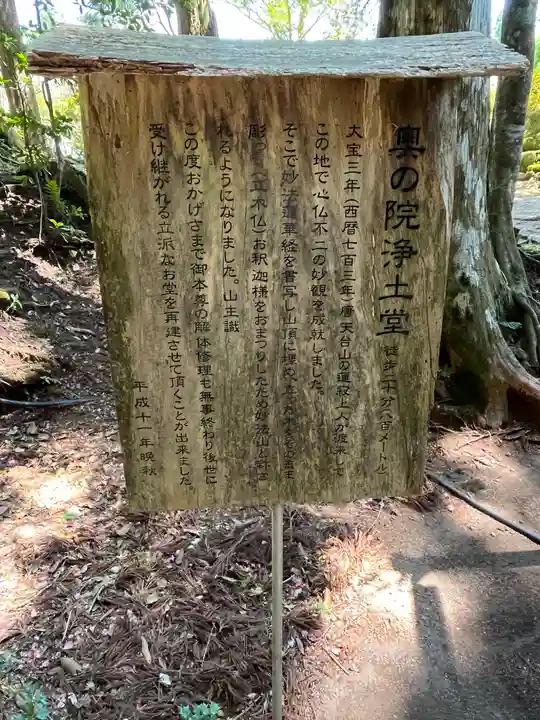 奥の院浄土堂 徒歩二十分(八百メートル)
大宝三年(西暦七百三年)唐天台山の蓮寂上人が渡来して
この地で心仏不二の妙観を成就しました。
そこで妙法蓮華経を書写し山頂に埋め、立ったままの
彫った(立木仏)お釈迦様をおまつりしたため妙法山と
れるようになりました。山主識
この度おかげさまで御本尊の解体修理も無事終わり後世に
受け継がれる立派なお堂を再建させて頂くことが出来ました。
平成十一年晩秋